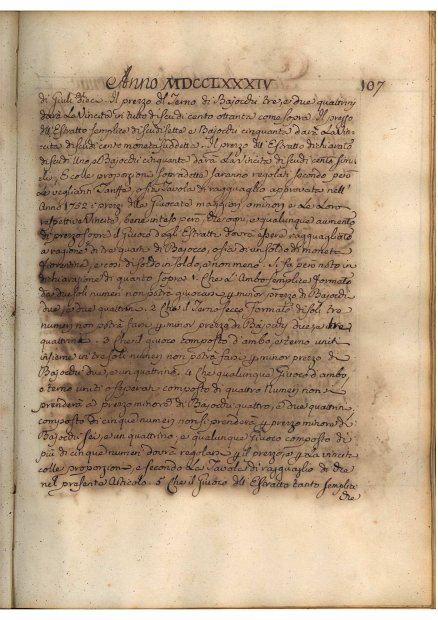 Anno MDCCLXXXIV 107
di Giuli dieci. Il prezzo del Terno di Bajocchi tre, e due quattrini
darà la Vincita in tutto di Scudi cento ottanta come sopra. Il prezzo
dell' Estratto semplice di Scudi sette e Bajocchi cinquanta darà la Vin-
cita di Scudi cento moneta suddetta. Il prezzo dell' Estratto dichiarato
di Scudi Uno e Bajocchi cinquanta darà la Vincita di Scudi cento simi-
le, e colle proporzioni sopradette saranno regolati secondo però
la vegliante Tariffa, o sia Tavola di ragguaglio approvata nell'
Anno 1752 i prezzi delle Giuocate maggiori, o minori, e le loro
respettive Vincite, bene inteso però, che ogni, e qualunque aumento
di prezzo sopra il Giuoco degli Estratti dovrà essere ragguagliato
a ragione di tre quarti di Bajocco, o sia di un Soldo di moneta
fiorentina, e così di Soldo in Soldo, e non meno. Si fa però noto in
dichiarazione di quanto sopra 1. Che l'Ambo semplice formato
da due soli numeri non potrà giuocarsi p minor prezzo di Bajocchi
due, e due quattrini. 2. Che il Terno secco formato di soli tre
numeri non potrà farsi p minor prezzo di Bajocchi due, e tre
quattrini. 3. Che il giuoco composto d'ambo, e terno uniti
insieme in tre soli numeri non potrà farsi p minor prezzo di
Bajocchi due, e un quattrino. 4. Che qualunque Giuoco d'ambo,
o terno uniti, o separati composto di quattro numeri non si
prenderà a prezzo minore di Bajocchi quattro, e due quattrini,
composto di cinque numeri non si prenderà p prezzo minore di
Bajocchi sei, e un quattrino, e qualunque Giuoco composto di
più di cinque numeri dovrà regolarsi p il prezzo, e p la vincita
colle proporzioni, e secondo la Tavola di ragguaglio di che
nel presente Articolo. 5. Che il Giuoco dell' Estratto tanto semplice
che